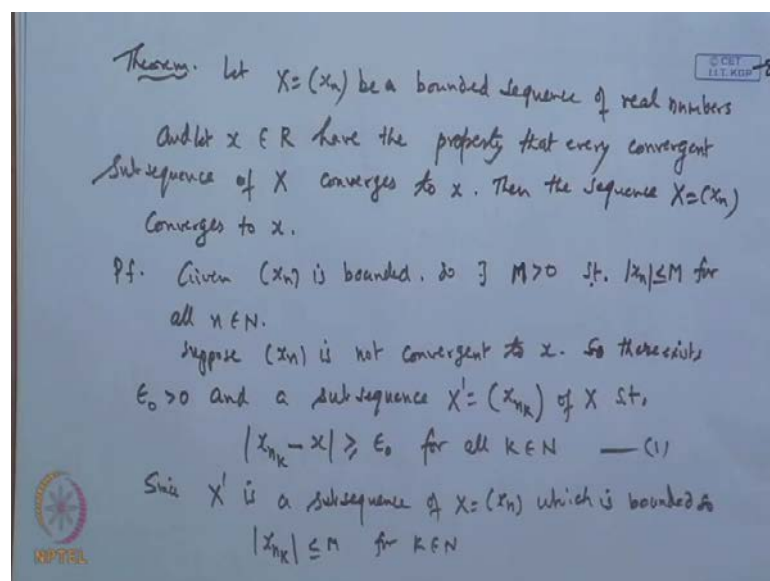 Theorem. Let X = (xₙ) be a bounded sequence of real numbers
© CET
I.I.T. KGP
And let x ∈ R have the property that every convergent
Subsequence of X converges to x. Then the sequence X=(xₙ)
Converges to x.
Pf. Given (xₙ) is bounded. So ∃ M>0 st. |xₙ| ≤ M for
all n ∈ N.
Suppose (xₙ) is not convergent to x. So there exists
ϵ₀ > 0 and a subsequence X' = (x_{n_K}) of X st.
|x_{n_K} - x| ⩾ ϵ₀ for all K ∈ N — (1)
Since X' is a subsequence of X = (xₙ) which is bounded so
|x_{n_K}| ≤ M for K ∈ N
NPTEL